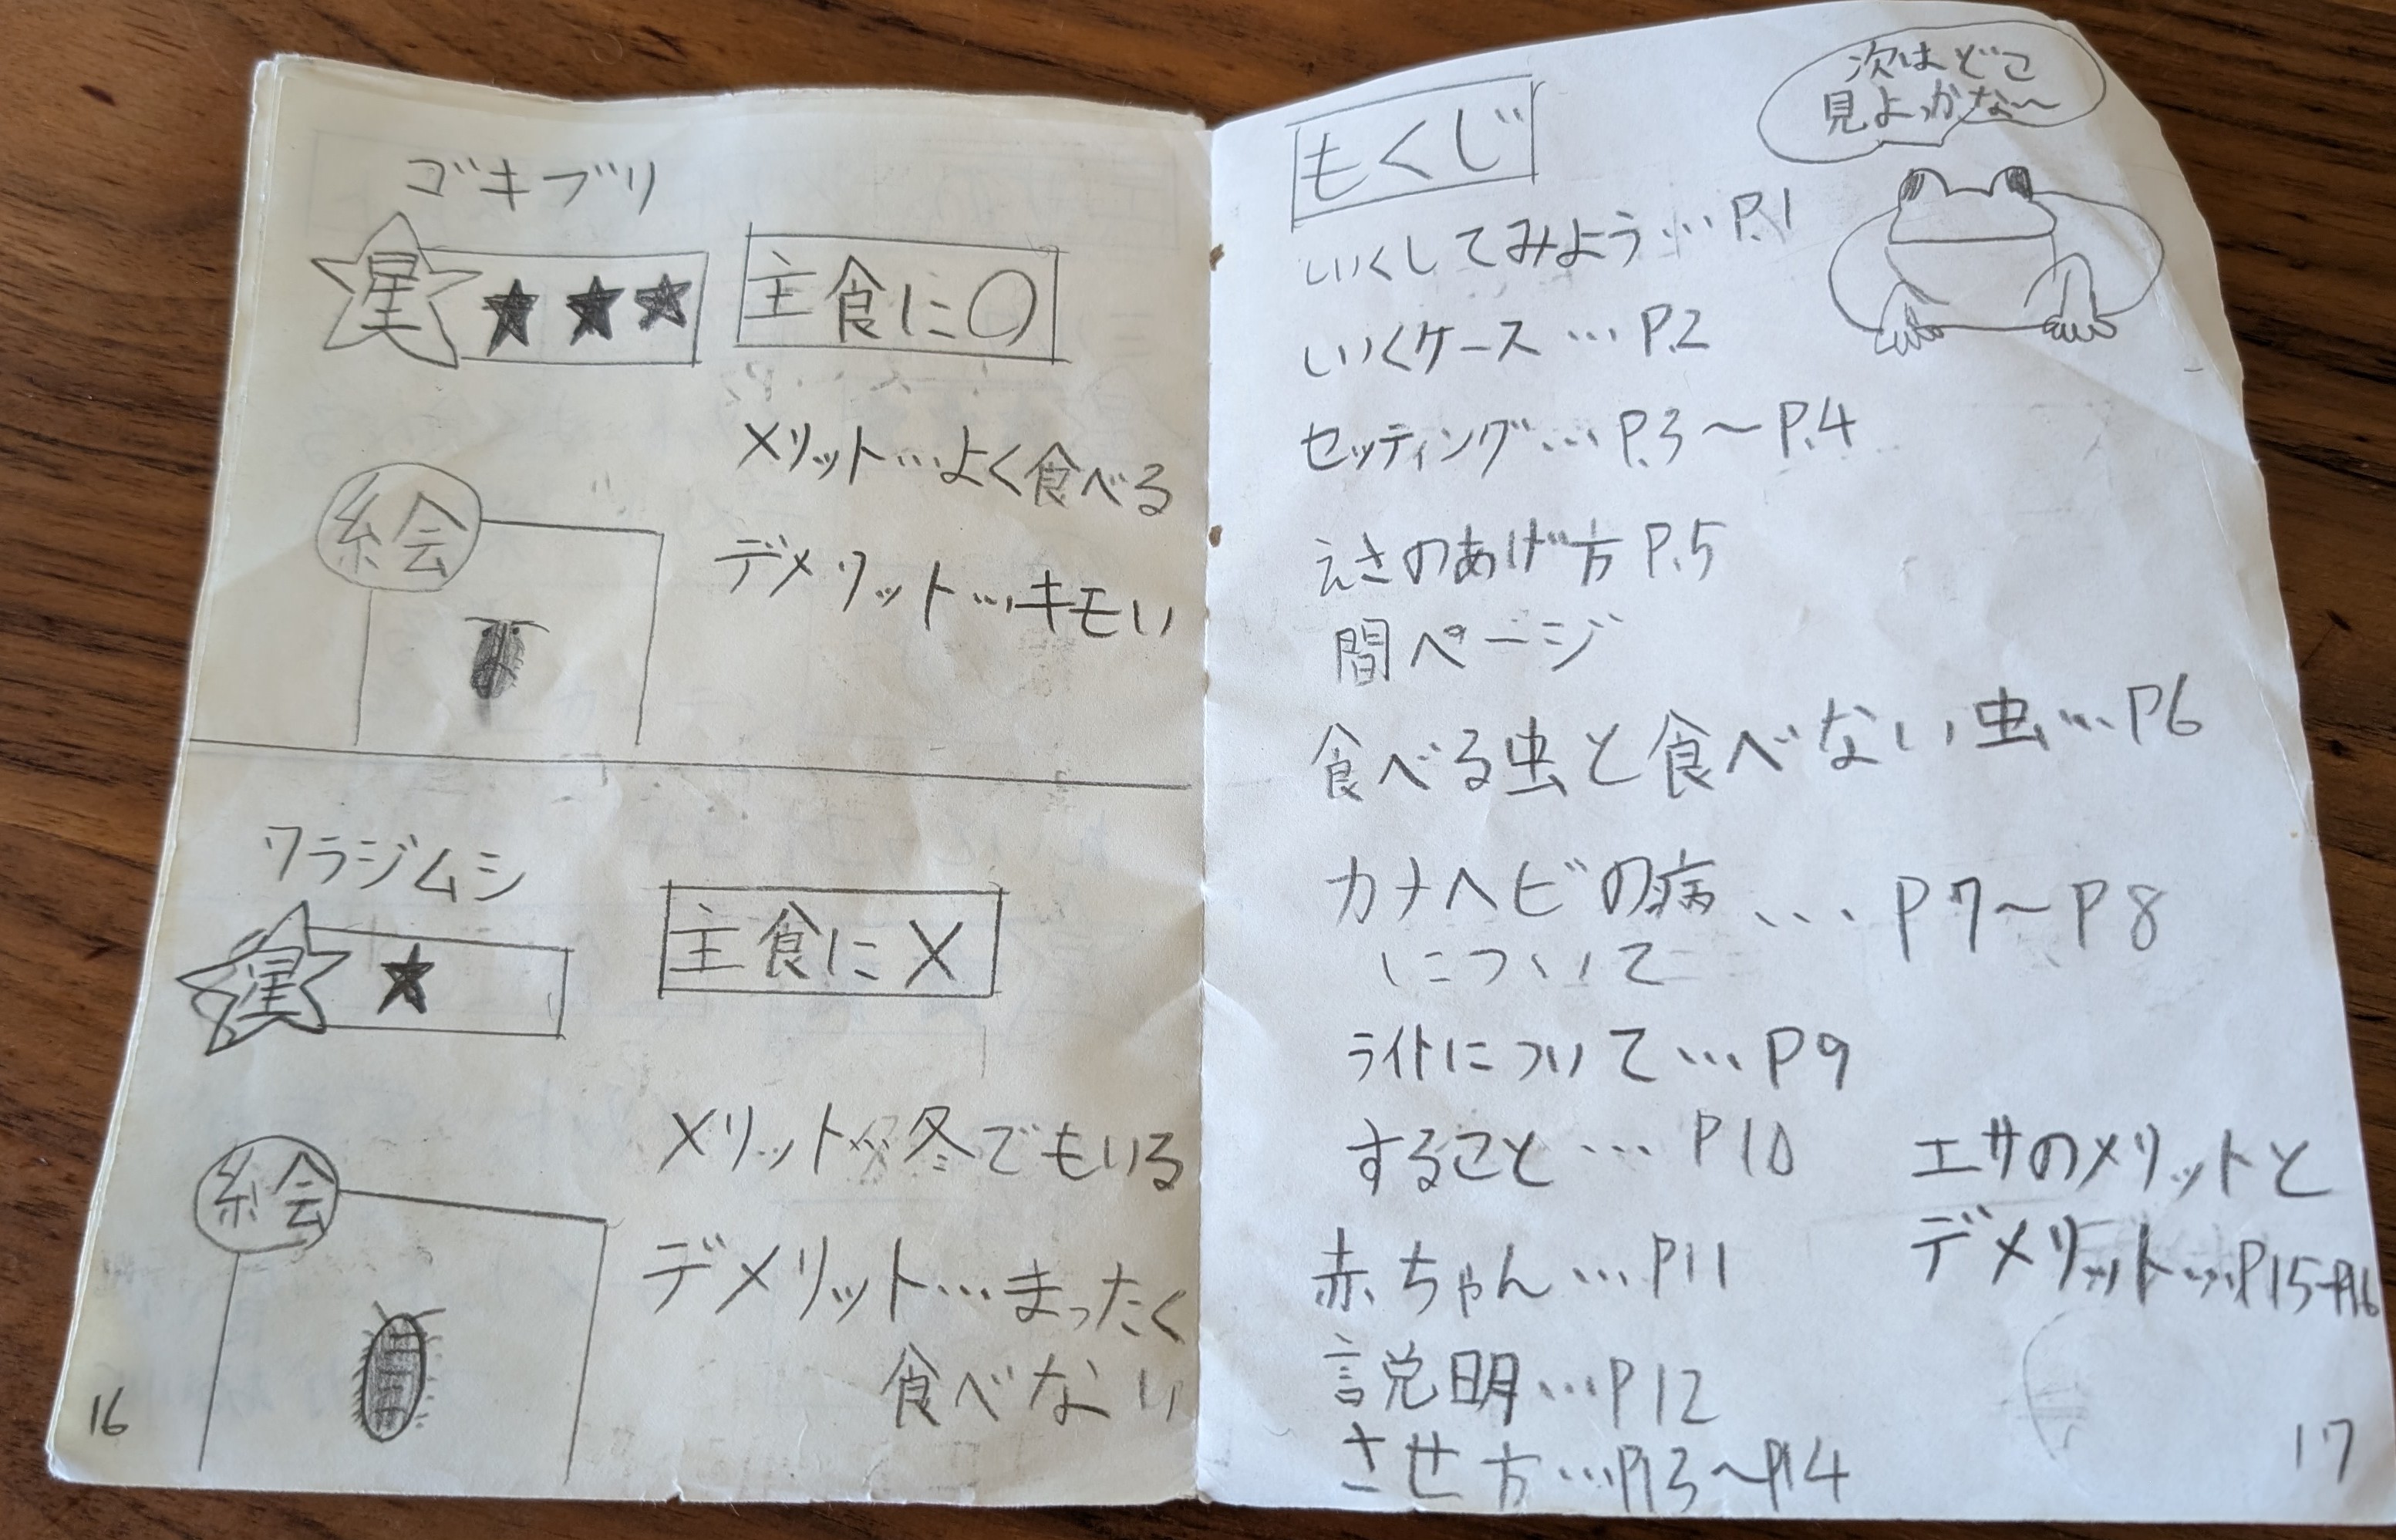 ゴキブリ
星 ★★★
主食に〇
メリット…よく食べる
デメリット…キモい
絵
ワラジムシ
星 ★
主食に×
メリット…冬でもいる
デメリット…まったく
食べない
絵
16
もくじ
次はどこ
見よっかな〜
しいくしてみよう…P.1
しいくケース…P.2
セッティング…P.3〜P.4
えさのあげ方P.5
間ページ
食べる虫と食べない虫…P6
カナヘビの病…P7〜P8
について
ライトについて…P9
すること…P10
赤ちゃん…P11
説明…P12
させ方…P13〜P14
エサのメリットと
デメリット…P15-P16
17